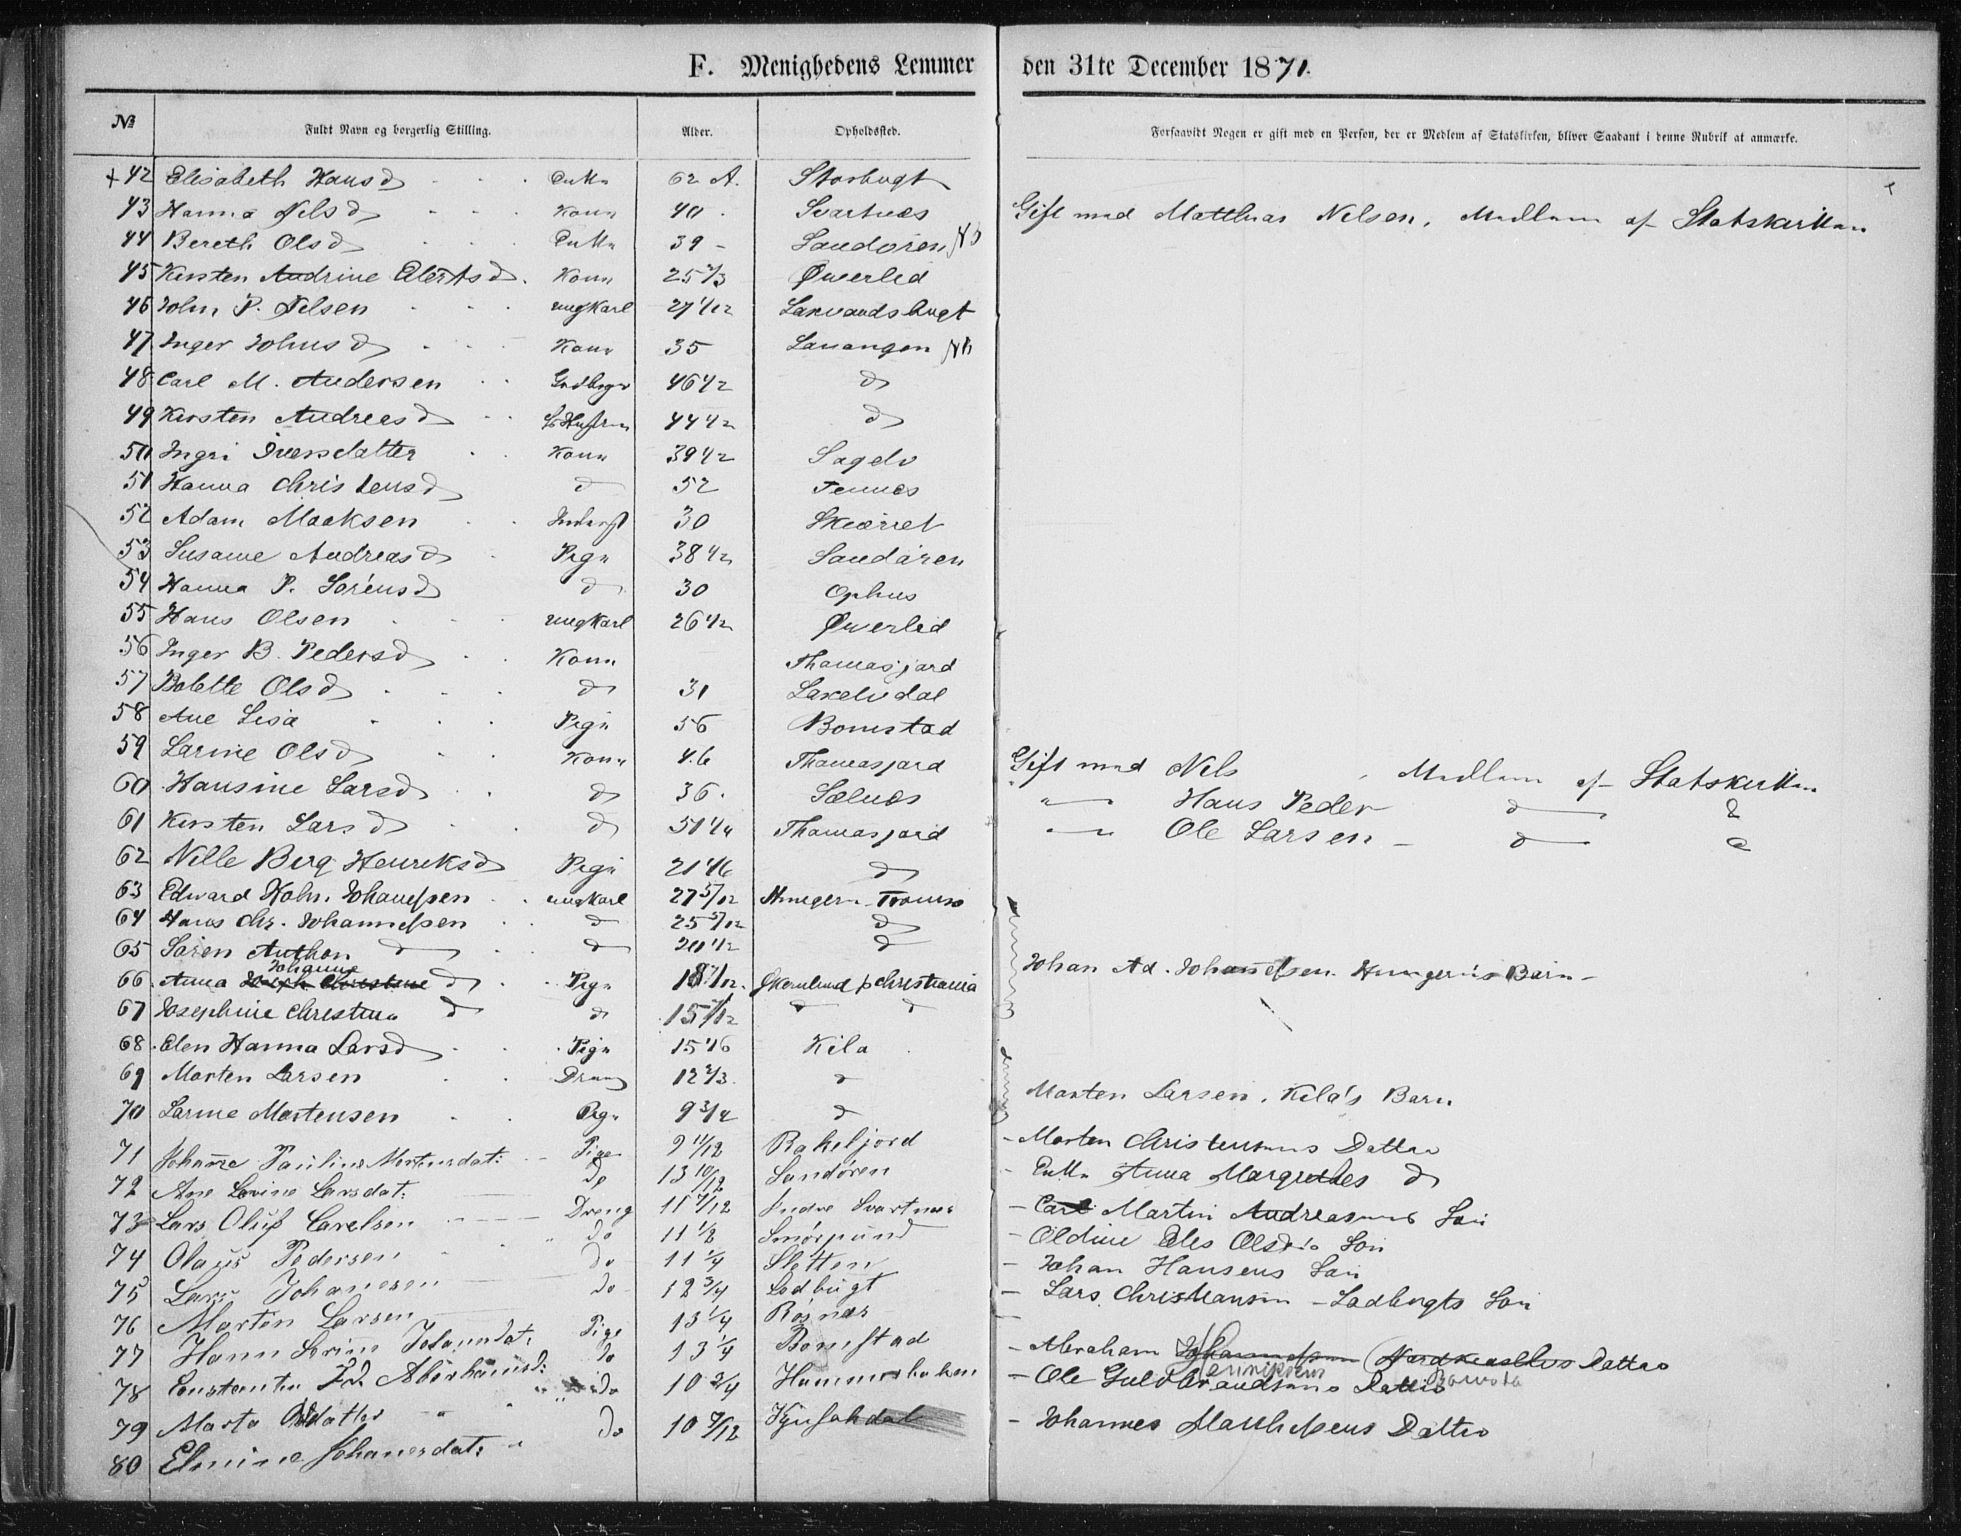 F. Menighedens Lemmer den 31te December 1871.
№ Fuldt Navn og borgerlig Stilling. Alder. Opholdssted. Forsaavidt Nogen er gift med en Person, der er Medlem af Statskirken, bliver Saadant i denne Rubrik at anmærke.
+ 42 Elisabeth Hansd Enke 62 A. Storbugt
43 Hanna Nilsd Kone 40 Svartnes Gift med Matthias Nilsen, Medlem af Statskirken
44 Bereth Olsd Enke 39 - Sandøren
45 Kirsten Andrine Elertsd. Kone 25 2/3 Øverlid
46 John P. Nilsen ungkarl 27 1/12 Laxvandsbugt
47 Inger Johnsd Kone 35 Lavangen
48 Carl M. Andersen 46 1/2 d
49 Kirsten Andreasd Hustru 44 1/2 d
50 Ingri Iversdatter Kone 39 1/2 Sagelv
51 Hanna Christensd d 52 Tennes
52 Adam Maeksen 30 Skjæret
53 Susanne Andreasd Pige 38 1/2 Sandøren
54 Hanna P. Sørensd d 30 Ophus
55 Hans Olsen ungkarl 26 1/2 Øverlid
56 Inger B. Pedersd Kone Thomasjord
57 Bolette Olsd d 31 Lakselvdal
58 Ane Lisa Pige 56 Bomstad
59 Larine Olsd Kone 46 Thomasjord Gift med Nils , Medlem af Statskirken
60 Hansine Larsd d 36. Sælnes " Hans Peder d d
61 Kirsten Larsd d 51 1/4 Thomasjord " Ole Larsen - d d
62 Nille Berg Henriksd Pige 21 1/6 d
63 Edward John. Johannesen ungkarl 27 5/12 Hungeren Tromsø
64 Hans Chr. Johannesen d 25 5/12 d
65 Søren Anthon d d 20 1/2 d
66 Anna Johanne d Pige Christiania Johan Ad. Johannesen Hungeren's Børn -
67 Josephine Christina d d 15 1/12 d d
68 Elen Hanna Larsd Pige 15 1/6 Kila
69 Morten Larsen Dreng 12 2/3 d
70 Larine Mortensen Pige 9 3/4 d Morten Larsen, Kila's Barn
71 Johanne Pauline Mortensdat: Pige 9 11/12 Rakfjord - Morten Christensens Datter
72 Ane Lovine Larsdat: do 13 10/12 Sandøren - Enke Anna Margrethes d
73 Lars Oluf Carelsen Dreng 11 7/12 Indre Svartnes - Carl Martin Andreasens Søn
74 Olaus Pedersen do 11 1/2 Smørpund - Oldine Eles Olsd's Søn
75 Lars Johanesen do 11 1/4 Sletten - Johan Hansens Søn
76 Morten Larsen do 12 3/4 Lodbugt - Lars Christiansen - Ladbugts Søn
77 Hann Serine Johannsdat: Pige 13 1/4 Røsnæs -
78 Constantin Joh. Abrahamsd: do 13 1/4 Bomstad - Abraham Johannesen (Nordkjoselvs Datter
79 Marta Oldatter do 10 3/4 Hammerbaken - Ole Guldbrandsens Datter
80 Elmine Johanesdat: do 10 7/12 Kynsahdal - Johannes Matthisens Datter